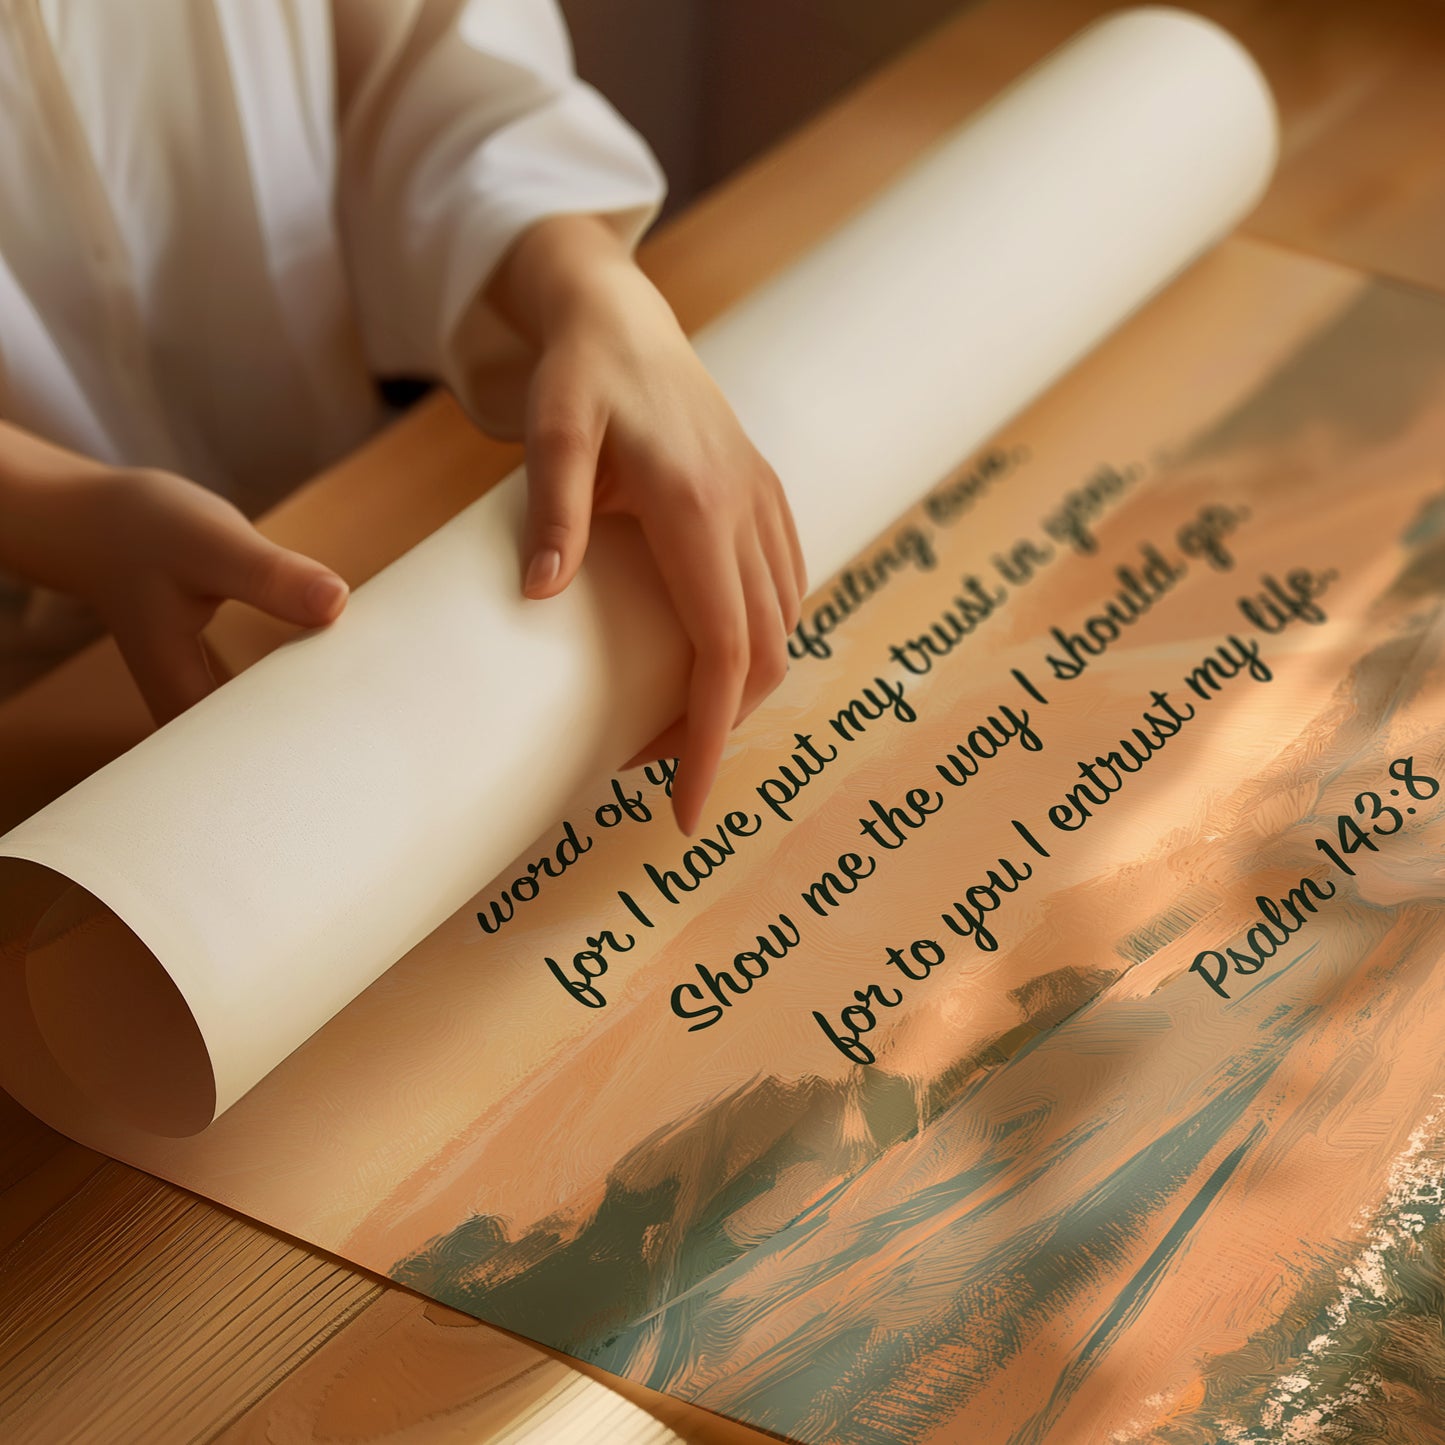 word of y failing love.
for I have put my trust in you.
Show me the way I should go,
for to you I entrust my life.
Psalm 143:8